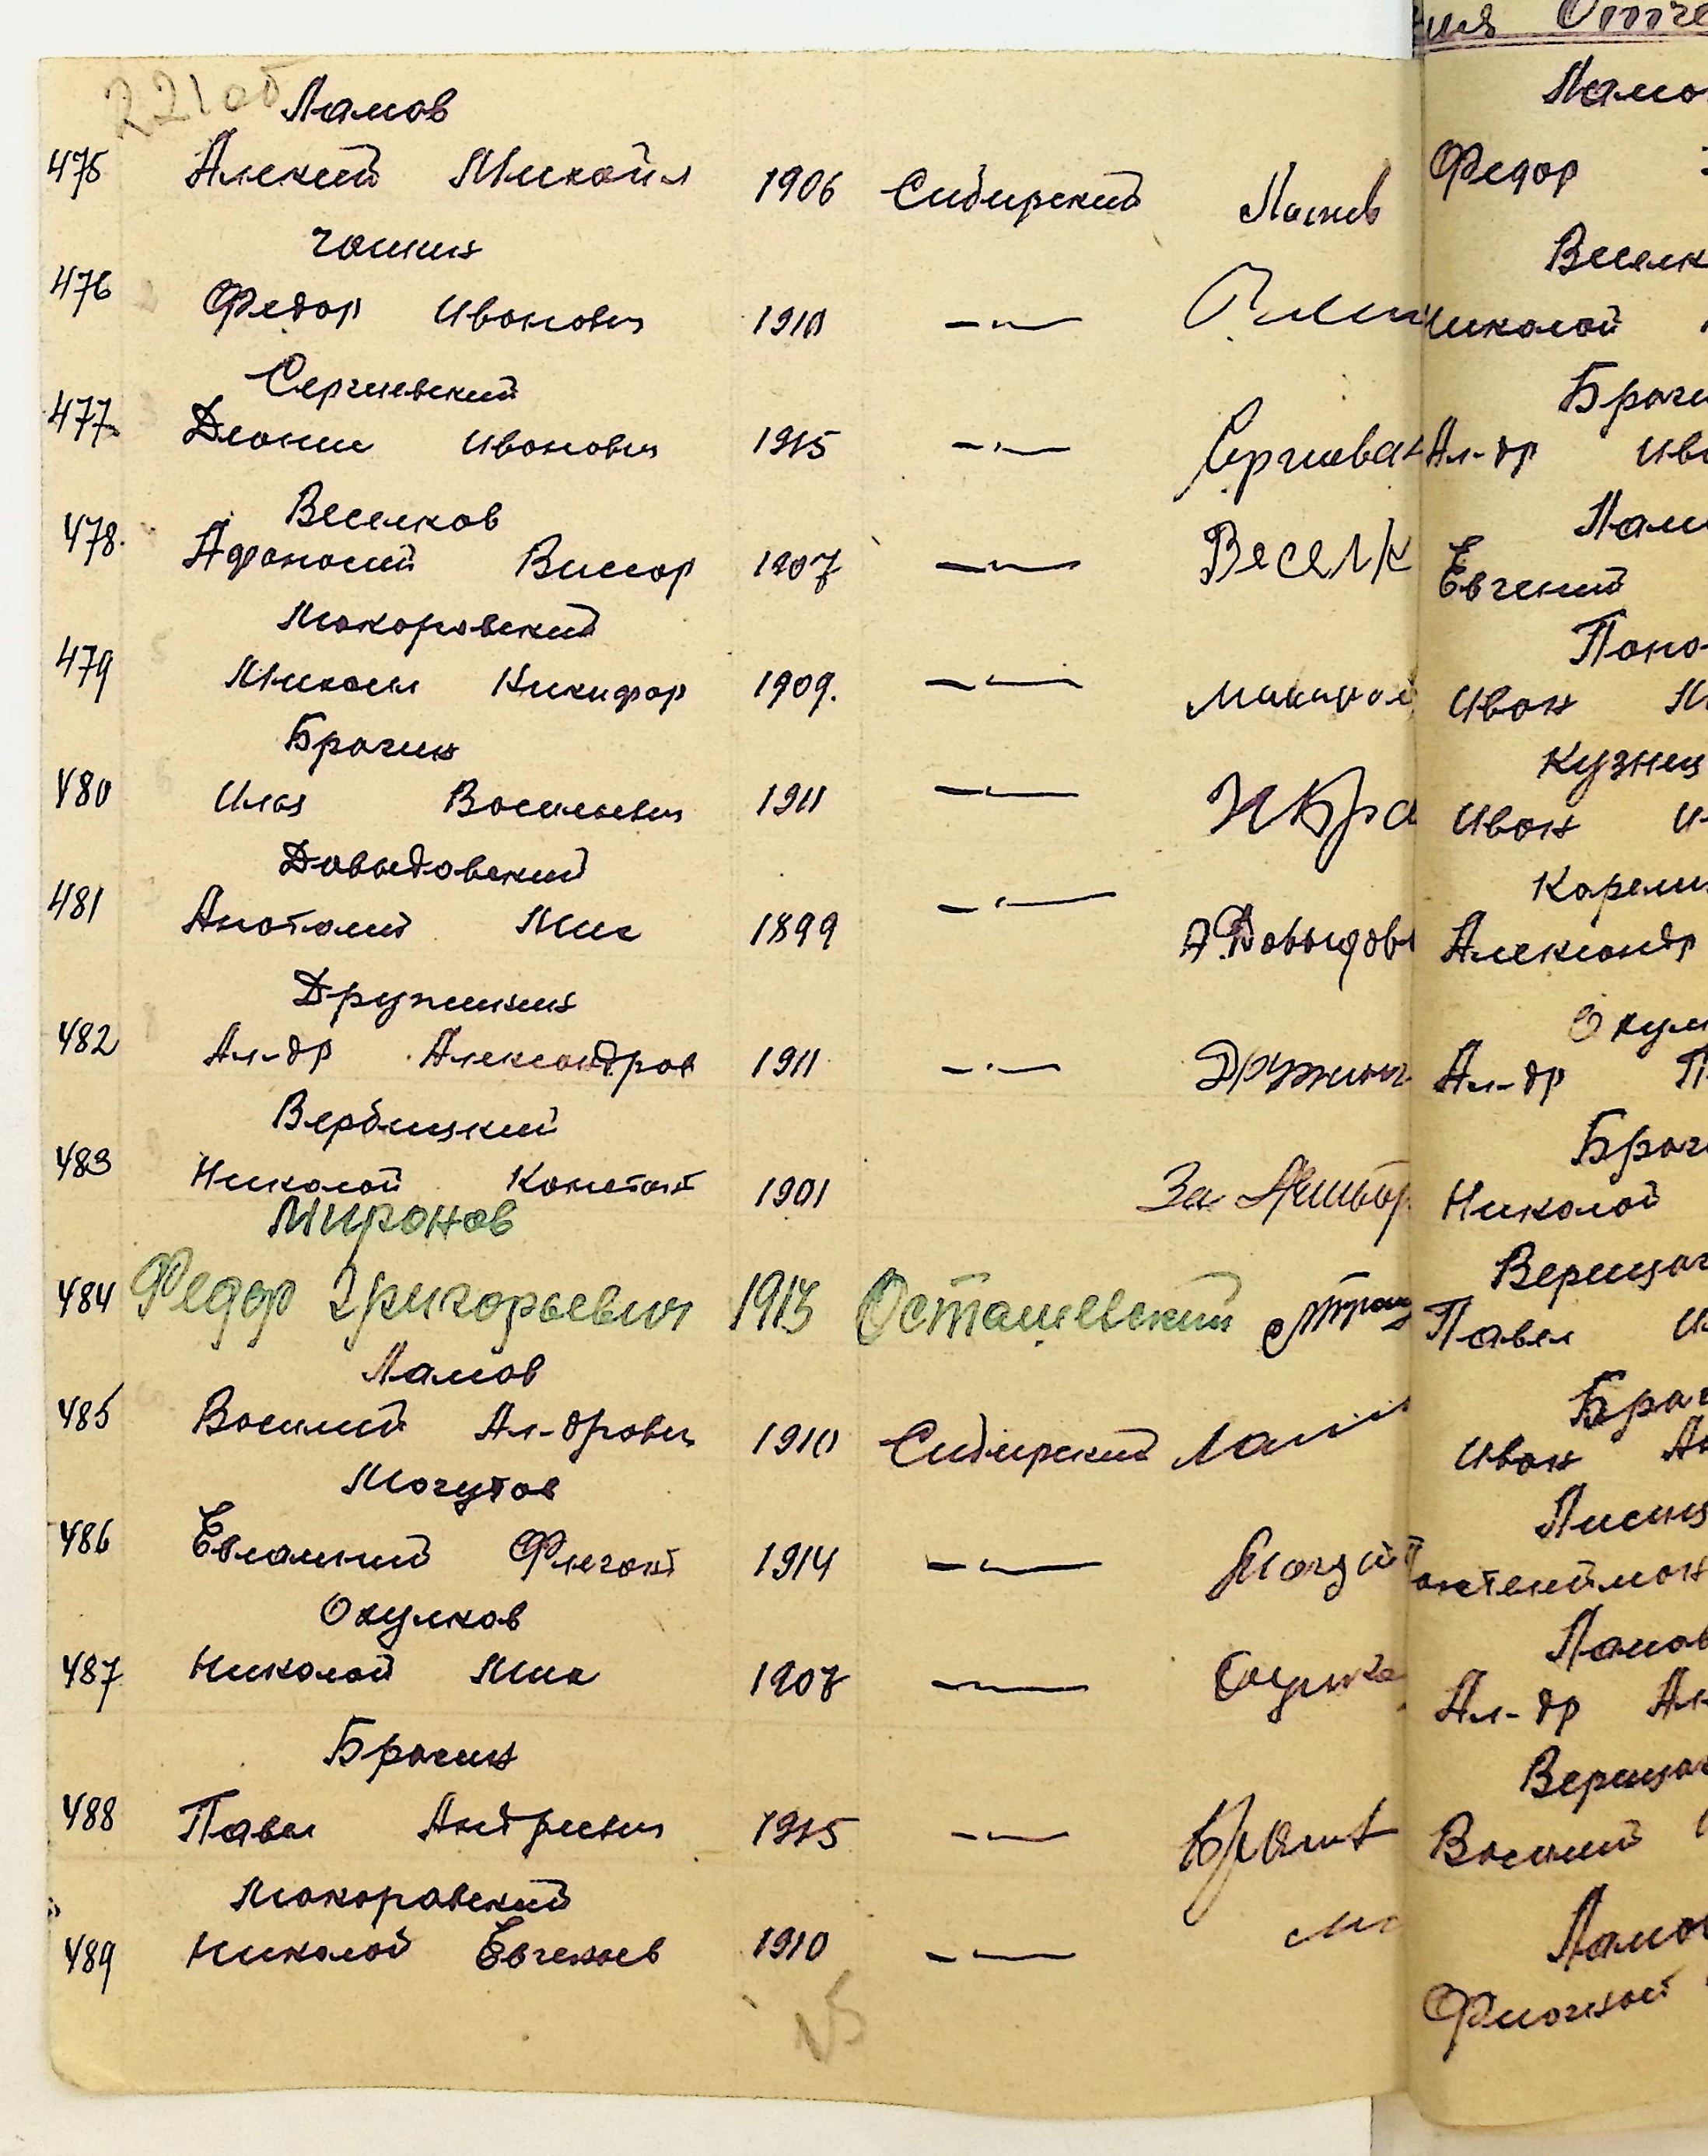 221об
Ламов
475 Алексей Михайл 1906 Сибирский Ламов
Чашин
476 Федор Иванович 1910 —"—
Сергиевский
477 Леонид Иванович 1915 —"— Сергиевск
Веселков
478. Афанасий Виссар 1907 —"— Веселк
Макаровский
479 Михаил Никифор 1909. —"— Макаров
Брагин
480 Илья Васильевич 1911 —"— И Бра
Давыдовский
481 Анатолий Мих 1899 —"— А.Давыдов
Дружинин
482 Ал-др Александров 1911 —"— Дружинин
Вербицкий
483 Николай Констант 1901 За
Миронов
484 Федор Григорьевич 1913 Осташевский
Ламов
485 Василий Ал-дрович 1910 Сибирский Лам
Могутов
486 Евлампий Флегонт 1914 —"— Могут
Окулков
487 Николай Мих 1907 —"— Окулко
Брагин
488 Павел Андреевич 1915 —"— Брагин
Макаровский
489 Николай Евгеньев 1910 —"— Ма
√5
ия Отче
Ламо
Федор
Веселк
Николай
Браги
Ал-др Ива
Лам
Евгений
Поно
Иван М
Кузнец
Иван И
Корели
Александр
Окул
Ал-др П
Браг
Николай
Верещаг
Павел И
Браг
Иван Ан
Лисиц
Пантелеймон
Ламов
Ал-др Ал
Верещаг
Василий
Ламов
Флегонт